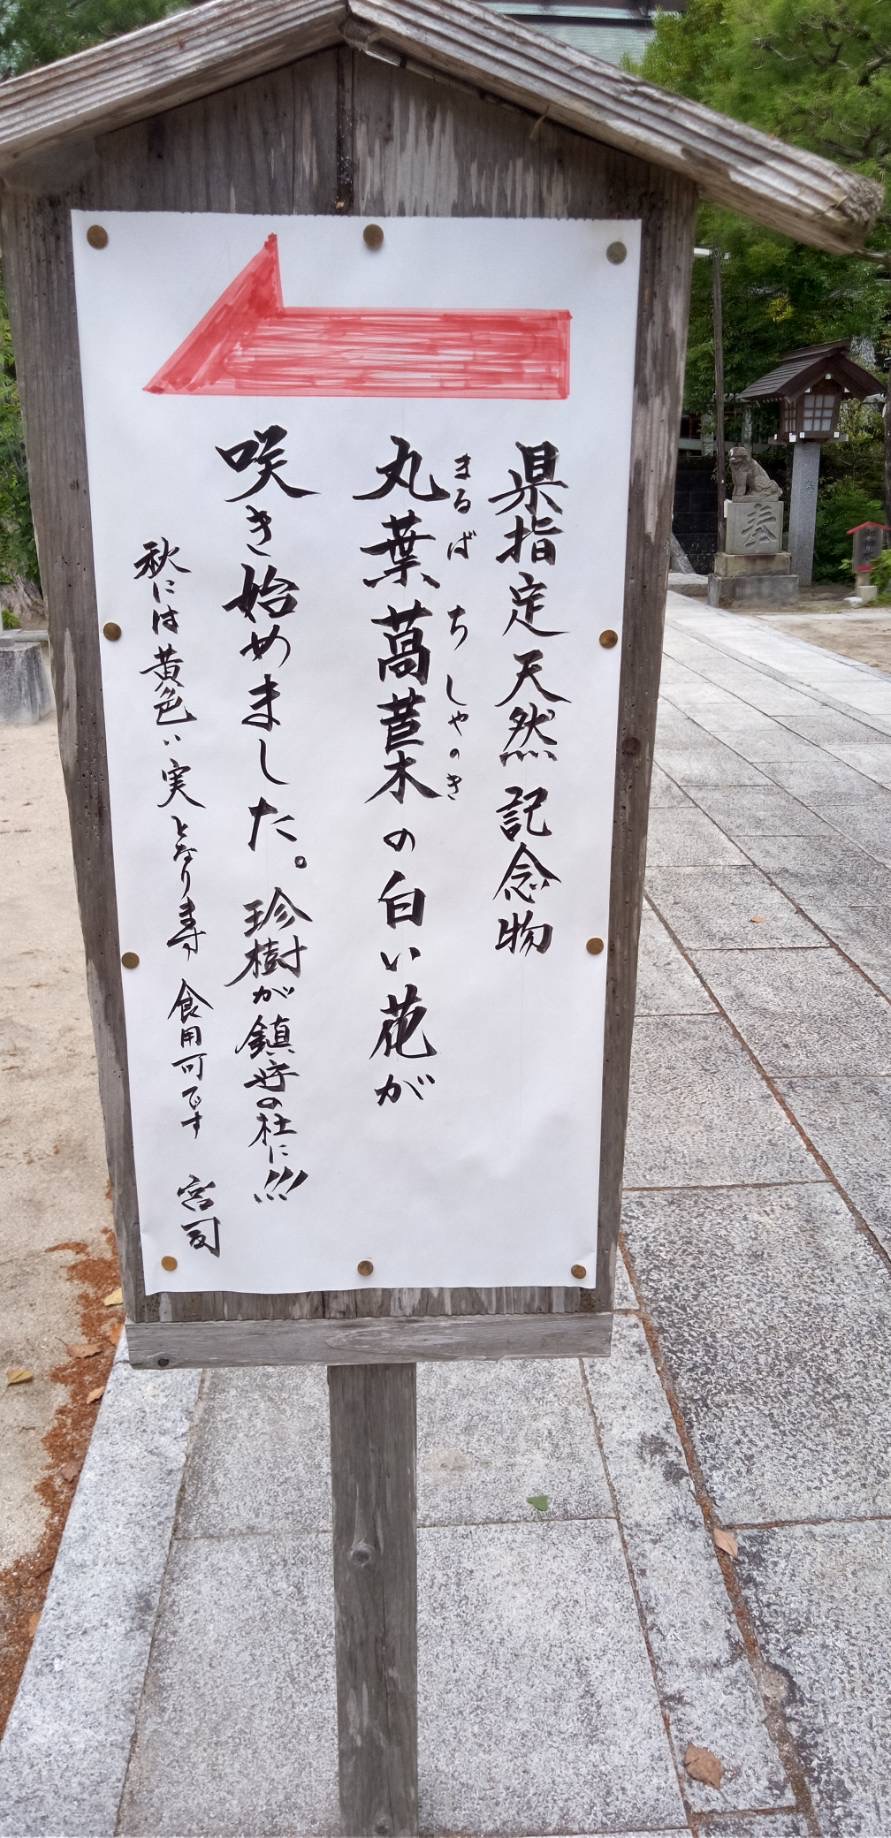 県指定天然記念物
まるば ちしゃのき
丸葉萵苣木の白い花が
咲き始めました。珍樹が鎮守の杜に!!!
秋には黄色い実となります 食用可です 宮司
奉